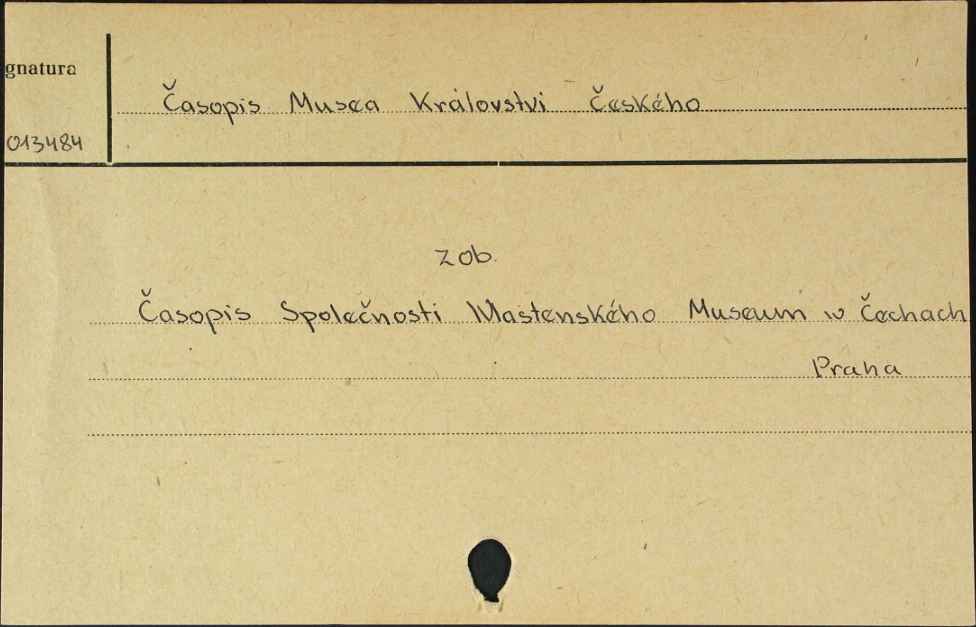 gnatura
Časopis Musea Království Českého
013484
zob.
Časopis Společnosti Wlastenského Museum w Čechach
Praha